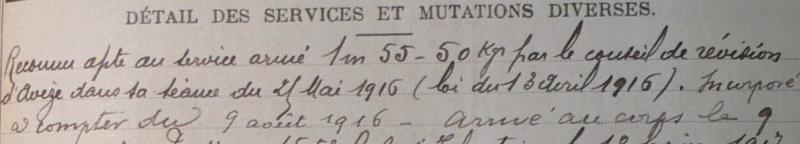 DÉTAIL DES SERVICES ET MUTATIONS DIVERSES.
Reconnu apte au service armé 1m 55 - 50 Kgs par le conseil de révision
d'Avize dans sa séance du 25 Mai 1916 (loi du 13 Avril 1916). Incorporé
à compter du 9 août 1916 - arrivé au corps le 9